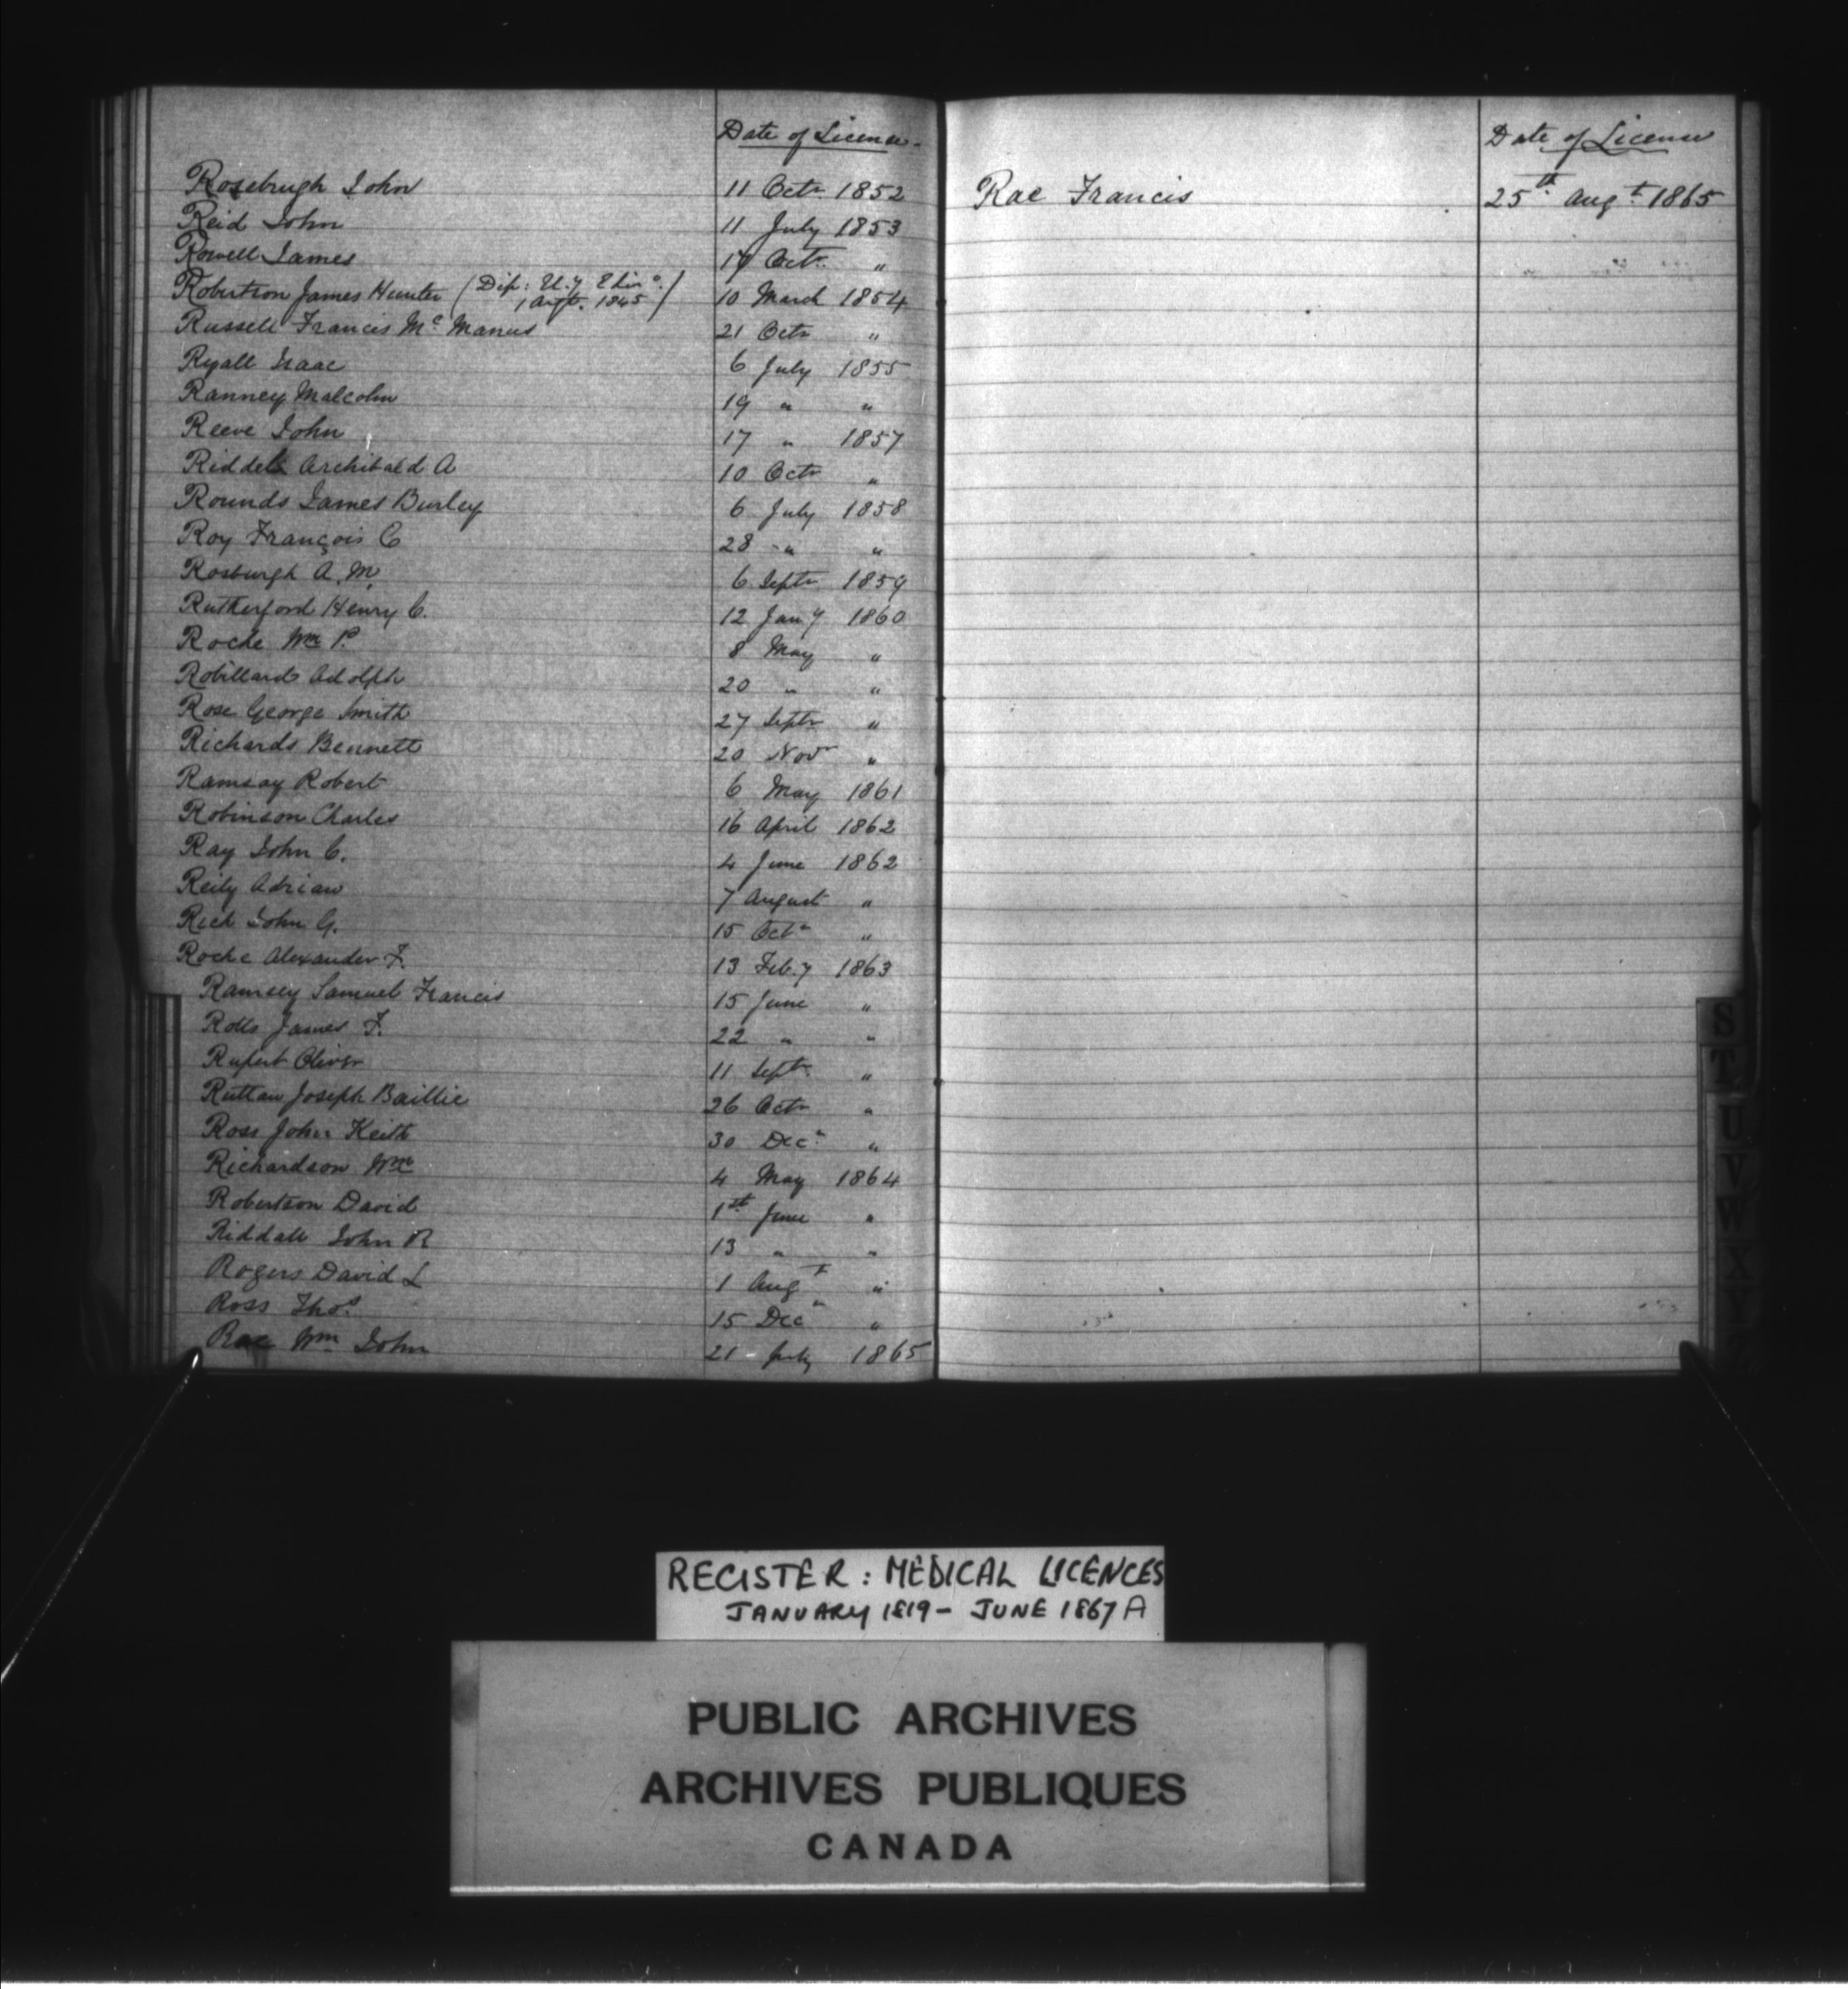 Date of License.
Rosebrugh John 11 Octr. 1852
Reid John 11 July 1853
Rowell James 17 Octr. "
Robertson James Hunter (Dip: U.y Edin.o 1 Augt. 1845) 10 March 1854
Russell Francis Mc Manus 21 Octr "
Ryall Isaac 6 July 1855
Ranney Malcolm 19 " "
Reeve John 17 " 1857
Riddell Archibald A 10 Octr "
Rounds James Burley 6 July 1858
Roy François C 28 " "
Rosburgh A. M. 6 Septr 1859
Rutherford Henry C. 12 Jan.y 1860
Roche Wm P. 8 May "
Robillard Adolph 20 " "
Rose George Smith 27 Septr "
Richards Bennett 20 Novr "
Ramsay Robert 6 May 1861
Robinson Charles 16 April 1862
Ray John C. 4 June 1862
Reily Adrian 7 August "
Rich John G. 15 Octr "
Roche Alexander F. 13 Feb.y 1863
Ramsey Samuel Francis 15 June "
Rolls James F. 22 " "
Rupert Oliver 11 Septr. "
Ruttan Joseph Baillie 26 Octr "
Ross John Keith 30 Decr. "
Richardson Wm 4 May 1864
Robertson David 1st June "
Riddall John R 13 " "
Rogers David L 1 Augt "
Ross Thos. 15 Decr "
Rae Wm John 21 July 1865
Date of License
Rae Francis 25th. Augt. 1865
S
T
U
V
W
X
Y
REGISTER: MEDICAL LICENCES
JANUARY 1819 - JUNE 1867 A
PUBLIC ARCHIVES
ARCHIVES PUBLIQUES
CANADA